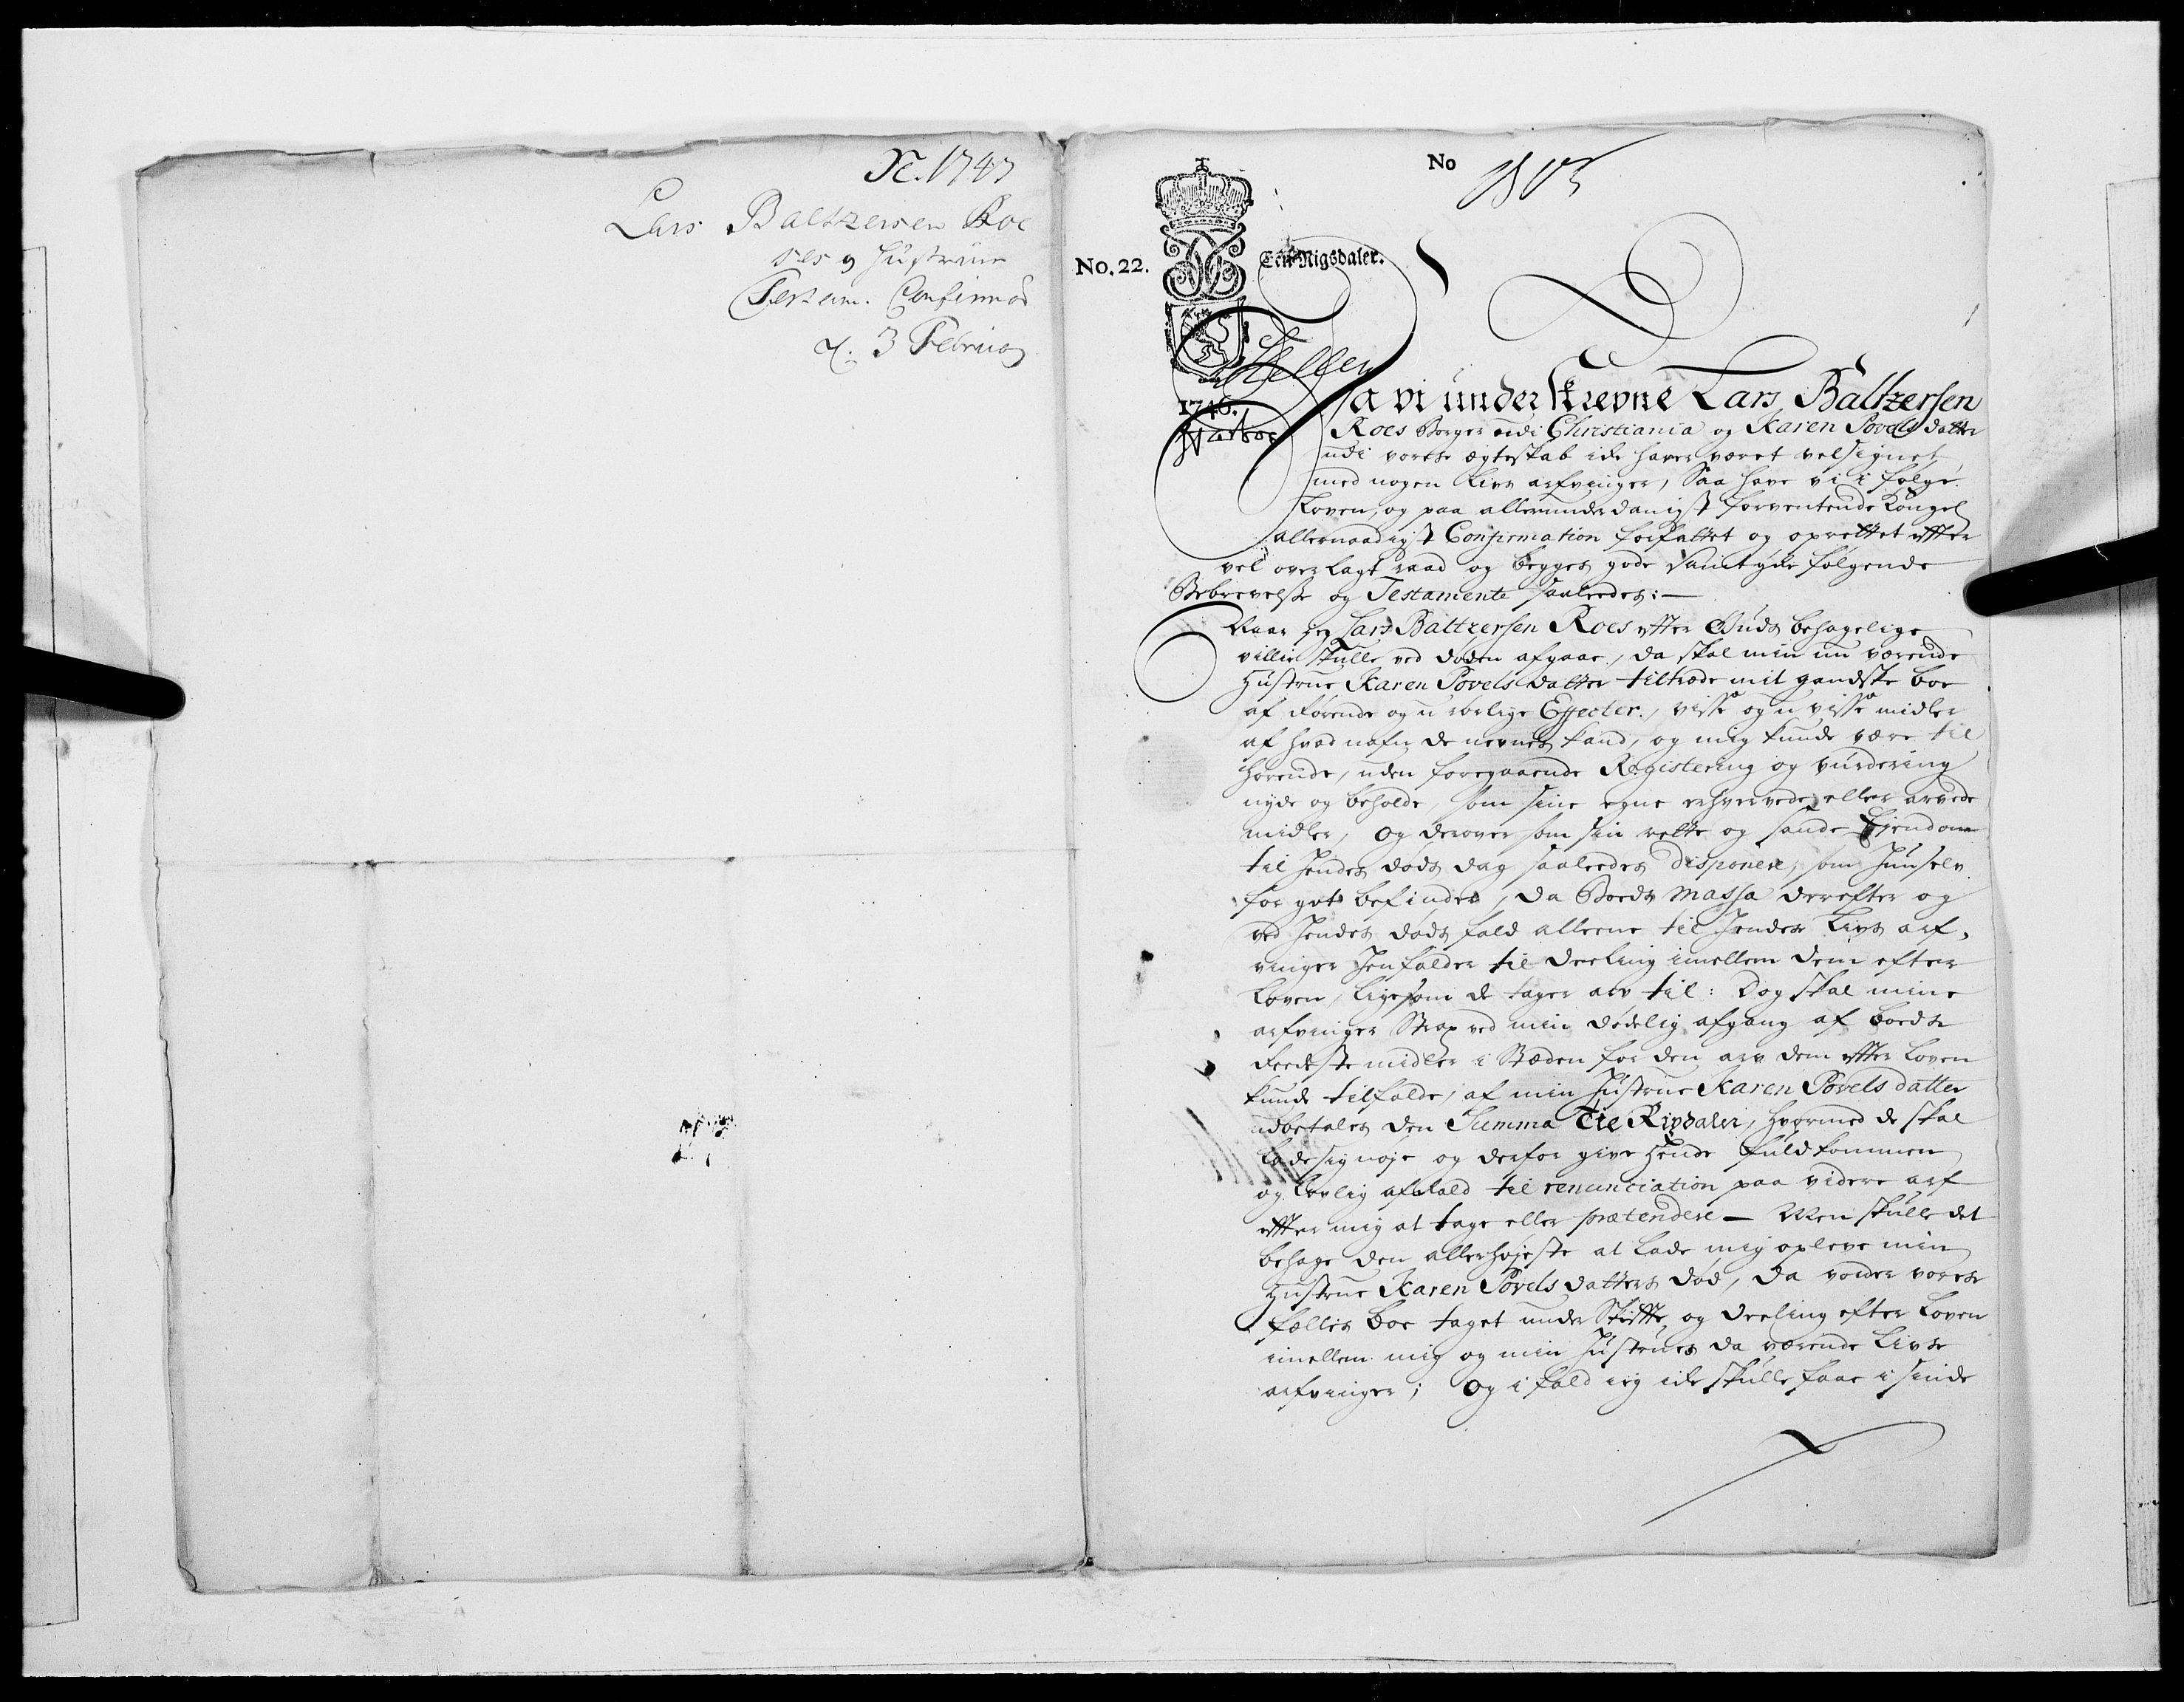 N. 1747
Lars Baltzersen Roe
ses og Hustrues
Testam. Confirmað
d. 3 Februar
No
No. 22.
Een Rigsdaler.
1746.
Da vi underskrevne Lars Baltzersen
Roes Borger udi Christiania og Karen Povels datter
udi vores ægteskab icke haver været velsignet
med nogen Livs arfvinger, Saa have vi i følge
Loven, og paa allerunderdanigst forventende Kongel
allernaadigst Confirmation forfattet og oprettet efter
vel overlagt raad og begges gode Samtycke følgende
Bebrevelse og Testamente saaledes:—
Naar jeg Lars Baltzersen Roes efter Guds behagelige
villie skulle ved døden afgaae, da skal min nu værende
Hustrue Karen Povels datter tiltræde mit gandske boe
af rørende og urørlige Effecter, visse og u visse midler
af hvad nafn de nevnes kand, og mig kunde være til
hørende, uden foregaaende Registering og vurdering
nyde og beholde, som sine egne erhvervede eller arvede
midler, Og derover som sin rette og sande Ejendom
til Hendes døds dag saaledes disponere, som Hun selv
for got befinder, da Boeds Massa derefter og
ved Hendes døds fald alleene til Hendes Livs arf-
vinger Henfalder til deeling imellem dem efter
Loven, ligesom de tager arv til: Dog skal mine
arfvinger Strax ved min dødelig afgang af boeds
Reedeste midler i Stæden for den arv dem efter Loven
kunde tilfalde, af min Hustrue Karen Povels datter
udbetales den Summa Tie Rixdaler, hvormed de skal
lade sig nøje og derfor give Hende fuldkommen
og lovlig afkald til renunciation paa videre arf
efter mig at tage eller prætendere — Men skulle det
behage den allerhøjeste at lade mig opleve min
Hustrue Karen Povels datters død, da vorder vores
fælles boe taget under Skifte og deeling efter Loven
imellem mig og min Hustrues da værende Livs
arfvinger; Og i fald jeg icke skulle faae i sinde